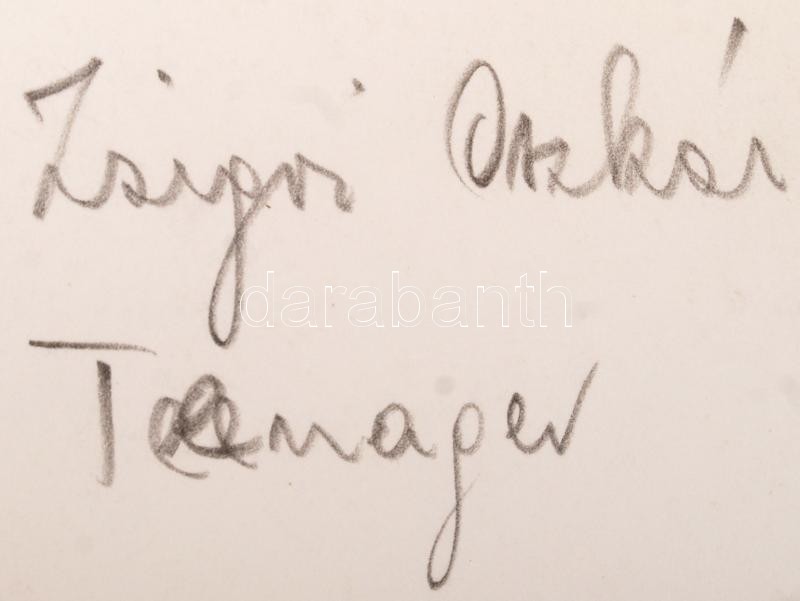 Zsigri Oszkár
darabanth
Teenager